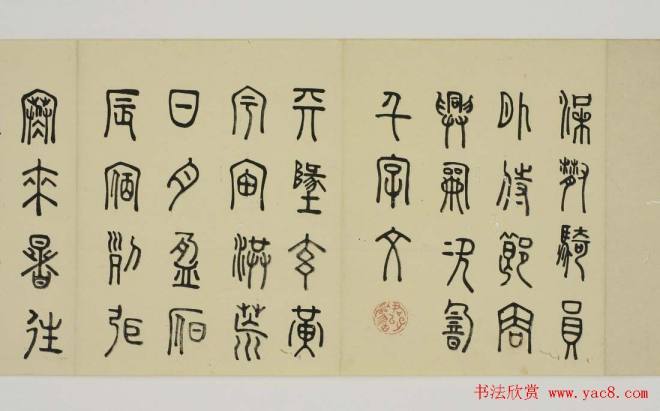 梁散騎員
外侍郎周
興嗣次韻
千字文
天墬玄黃
宇宙洪荒
日月盈昃
辰宿列張
寒來暑往
书法欣赏 www.yac8.com